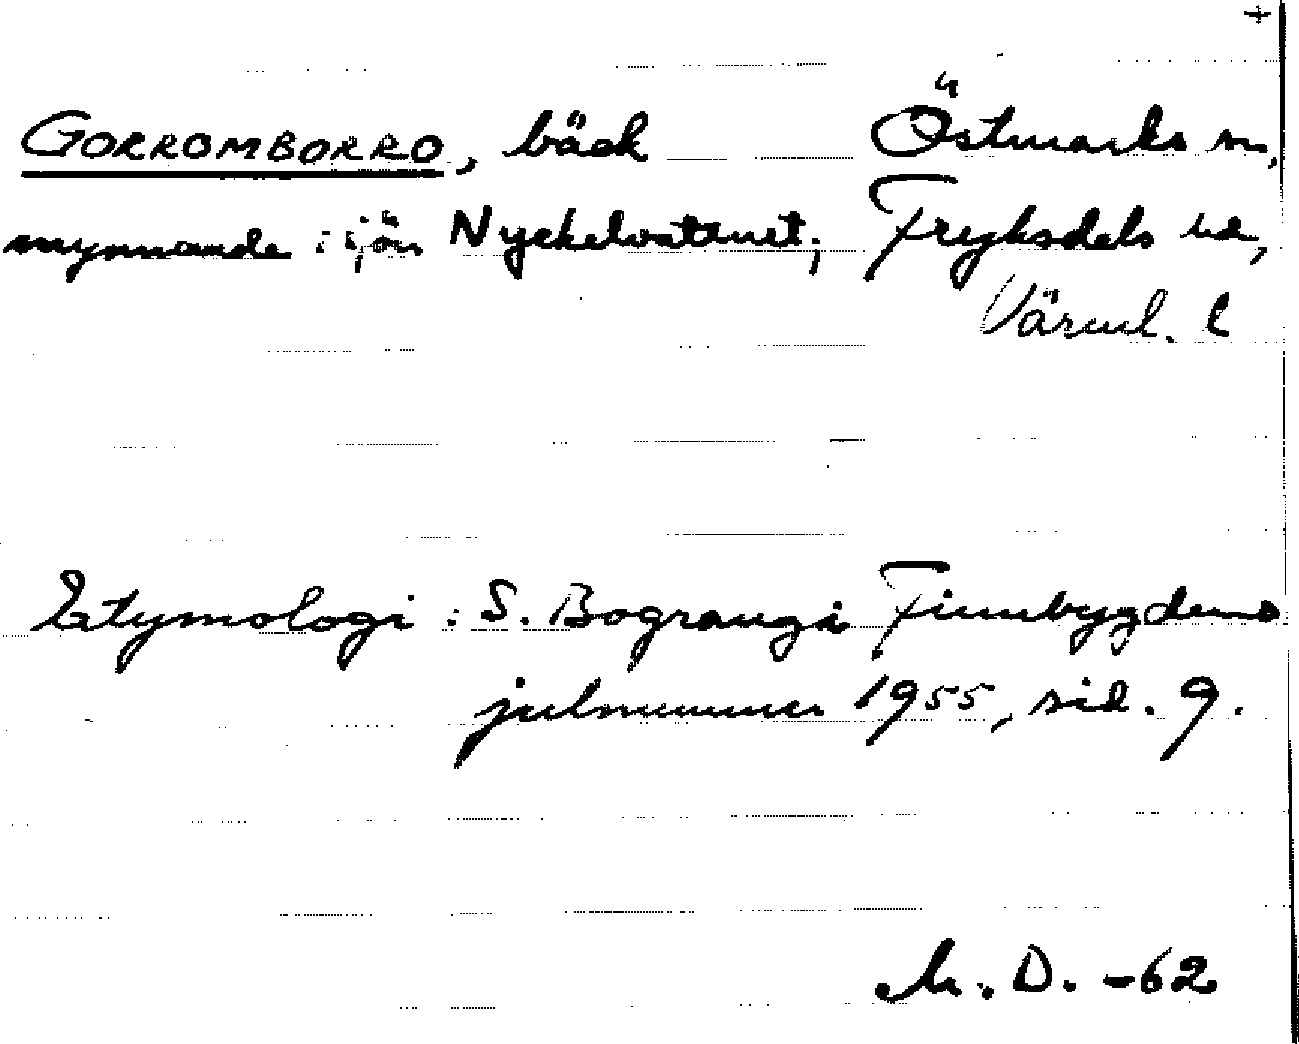 GORROMBORRO, bäck Östmarks sn,
mynnande i sjön Nyckelvattnet; Fryksdals hd,
Värml. l
Etymologi: S. Bograng i Finnbygdens
julnummer 1955, sid. 9.
M. D. -62